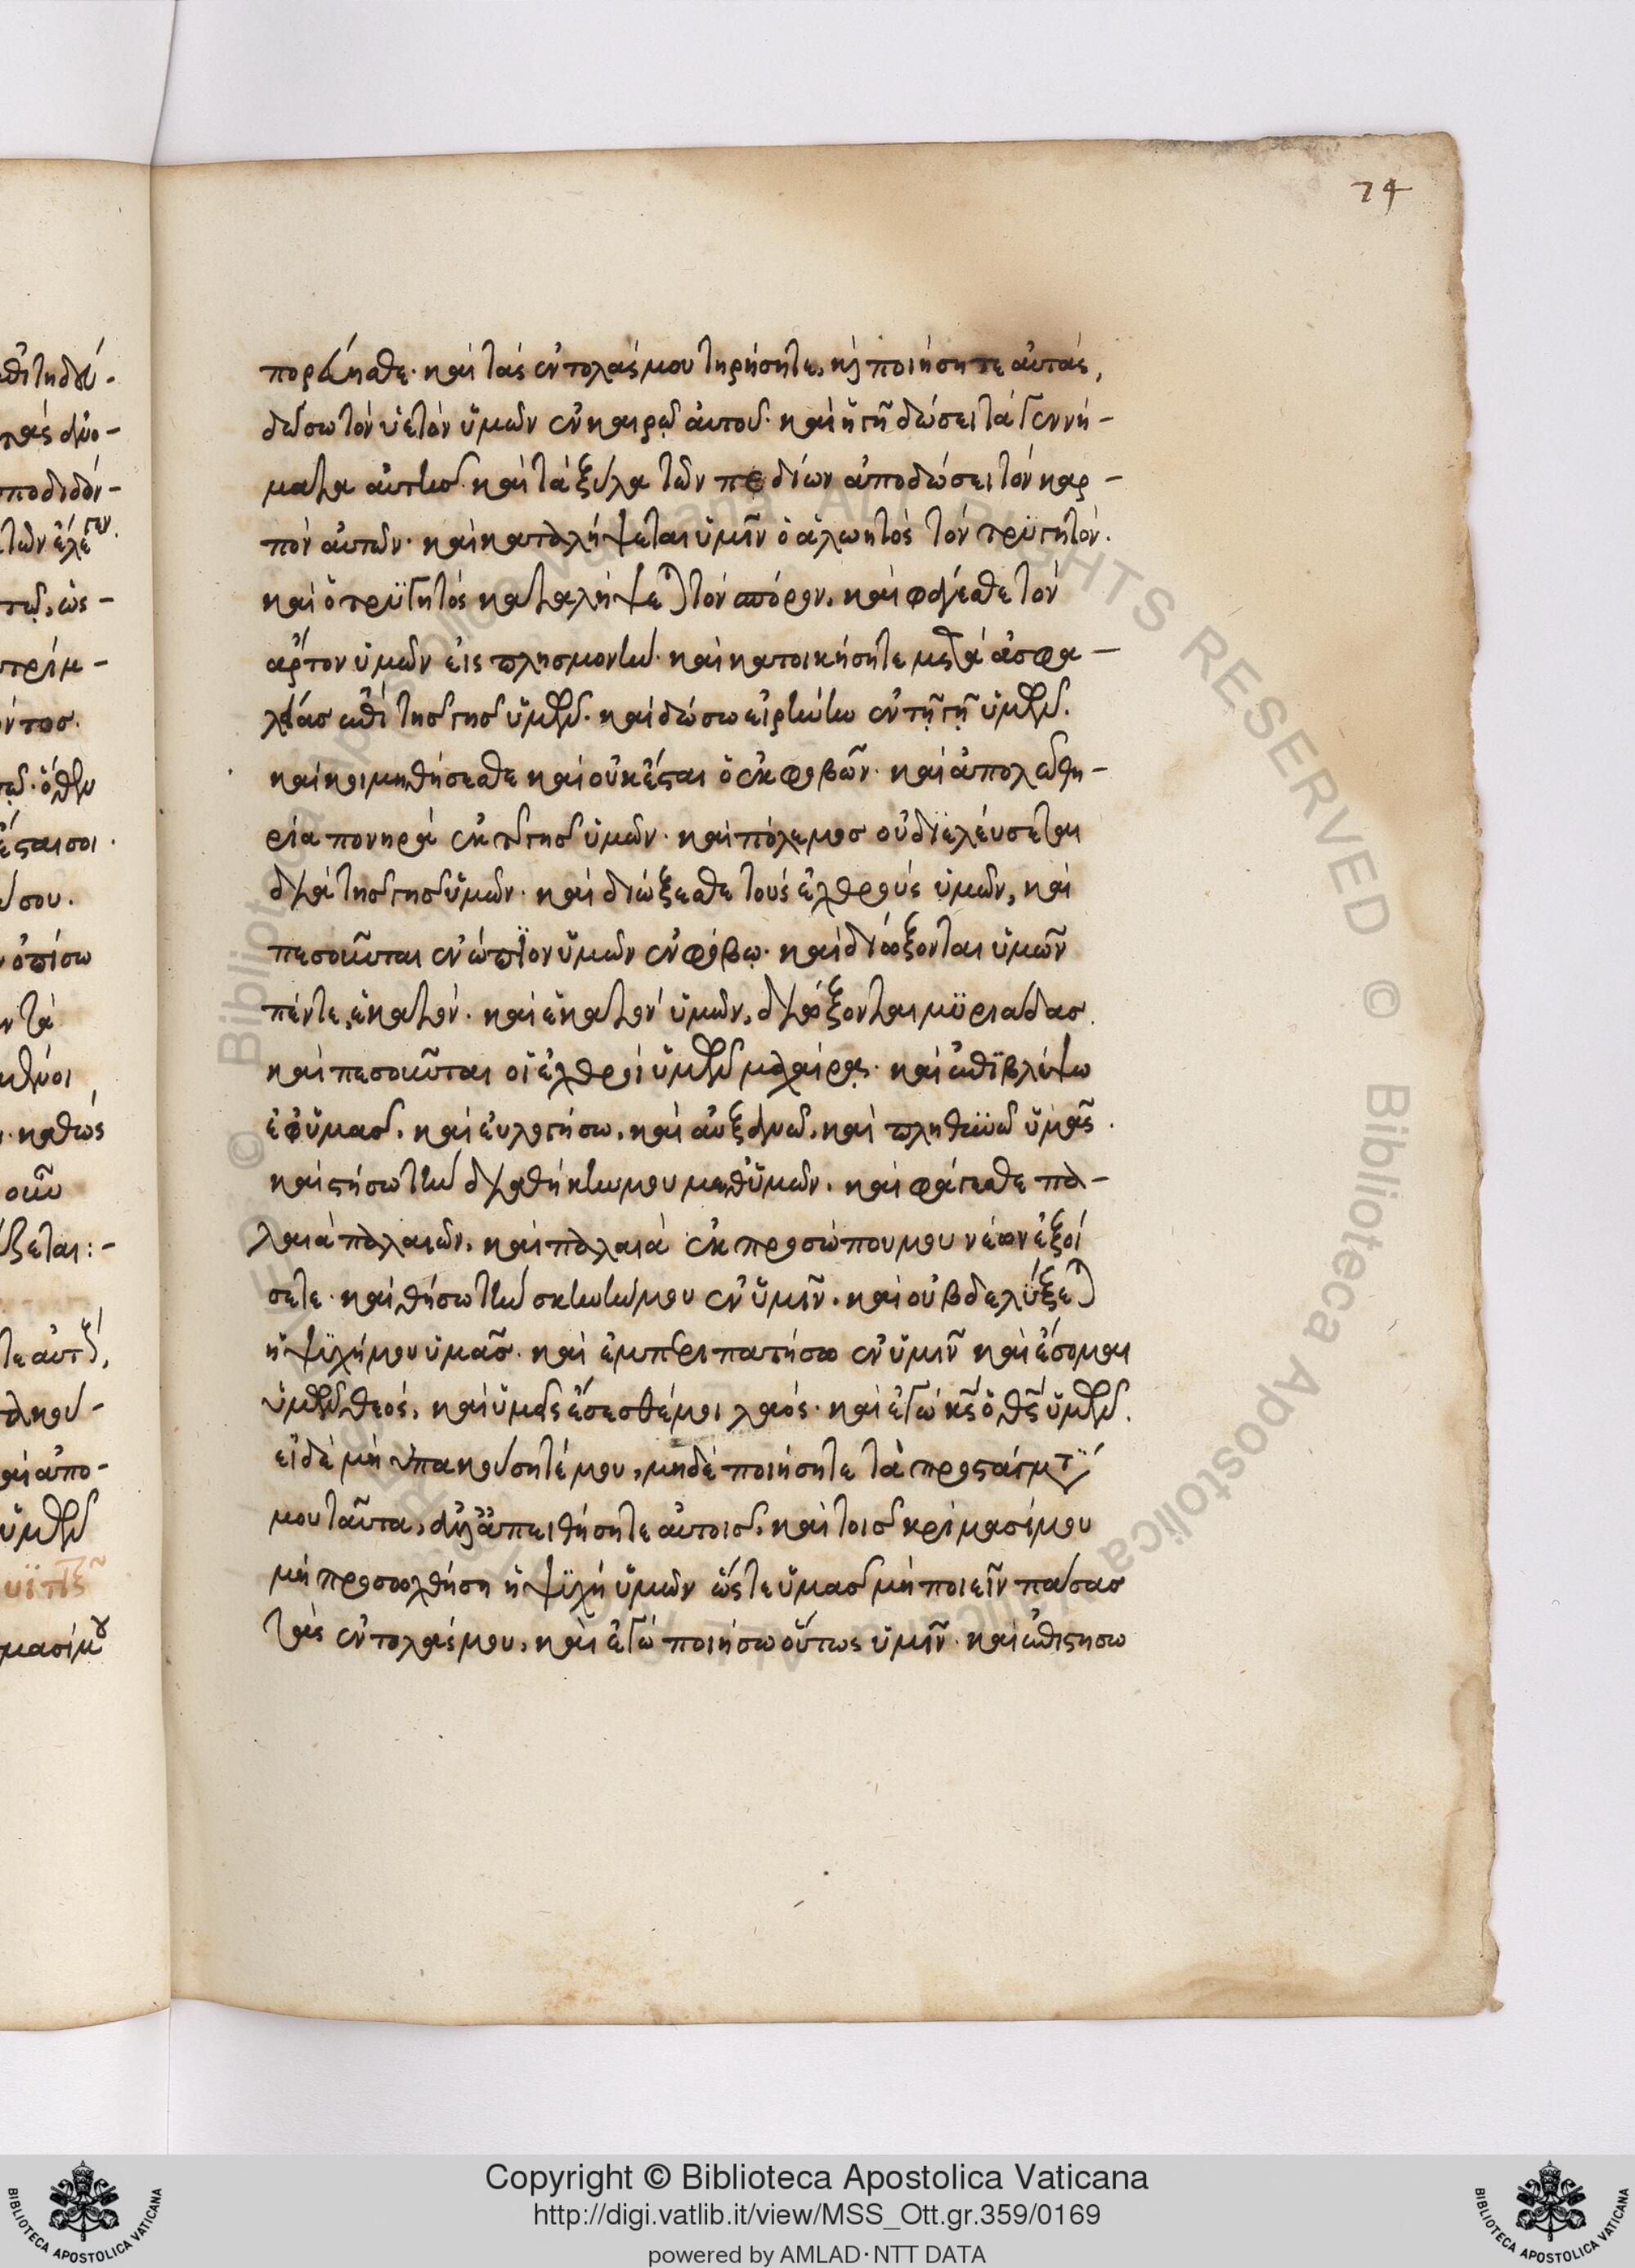 74
πορεύησθε· καὶ τὰς ἐντολάς μου τηρήσητε, κ̀ ποιήσητε αὐτάς,
δώσω τὸν ὑετὸν ὑμῶν ἐν καιρῷ αὐτοῦ· καὶ ἡ γῆ δώσει τὰ γεννή-
ματα αὐτῆσ· καὶ τὰ ξύλα τῶν πεδίων ἀποδώσει τὸν καρ-
πὸν αὐτῶν· καὶ καταλήψεται ὑμῖν ὁ ἀλωητὸς τὸν τρϋγητόν.
καὶ ὁ τρϋγητὸς καταλήψεται τὸν σπόρον, καὶ φάγεσθε τὸν
ἄρτον ὑμῶν εἰς πλησμονήν· καὶ κατοικήσητε μετὰ ἀσφα-
λείασ ἐπὶ τησ γησ ὑμῶν· καὶ δώσω εἰρήνην ἐν τῇ γῇ ὑμῶν.
καὶ κοιμηθήσεσθε καὶ οὐκ ἔσται ὁ ἐκφοβῶν· καὶ ἀπολῶ θη-
ρία πονηρὰ ἐκ τῆσ γησ ὑμῶν· καὶ πόλεμοσ οὐ διελέυσεται
διὰ τησ γησ ὑμῶν· καὶ διώξεσθε τοὺς ἐχθροὺς ὑμῶν, καὶ
πεσοῦνται ἐνώπϊον ὑμῶν ἐν φόβῳ· καὶ διώξονται ὑμῶν
πέντε, ἑκατόν· καὶ ἑκατὸν ὑμῶν, διώξονται μϋριάδασ.
καὶ πεσοῦνται οἱ ἐχθροὶ ὑμῶν μαχαίρᾳ· καὶ ἐπϊβλέψω
ἐφ ὑμασ, καὶ εὐλογήσω, καὶ αὐξανῶ, καὶ πληθϋνῶ ὑμᾶς.
καὶ στήσω τὴν διαθήκην μου μεθ ὑμῶν. καὶ φάγεσθε πα-
λαιὰ παλαιῶν, καὶ παλαιὰ ἐκ προσώπου μου νέων ἐξοί
σετε· καὶ θήσω τὴν σκηνήν μου ἐν ὑμῖν, καὶ οὐ βδελύξεται
ἡ ψϋχή μου ὑμᾶσ· καὶ ἐμπεριπατήσω ἐν ὑμῖν καὶ ἔσομαι
ὑμῶν θεός, καὶ ὑμεῖς ἔσεσθέ μοι λαός· καὶ ἐγὼ κ̅ς̅ ὁ θ̅ς̅ ὑμῶν.
εἰ δὲ μὴ ὑπακούσητέ μου, μηδὲ ποιήσητε τὰ προστάγματά
μου ταῦτα, ἀλλὰ ἀπειθήσητε αὐτοισ, καὶ τοισ κρίμασί μου
μὴ προσοχθήσῃ ἡ ψϋχὴ ὑμῶν ὥστε ὑμασ μὴ ποιεῖν πάσασ
τὰς ἐντολάς μου, καὶ ἐγὼ ποιήσω οὕτως ὑμῖν· καὶ ἐπιστησω
Copyright © Biblioteca Apostolica Vaticana
http://digi.vatlib.it/view/MSS_Ott.gr.359/0169
powered by AMLAD·NTT DATA